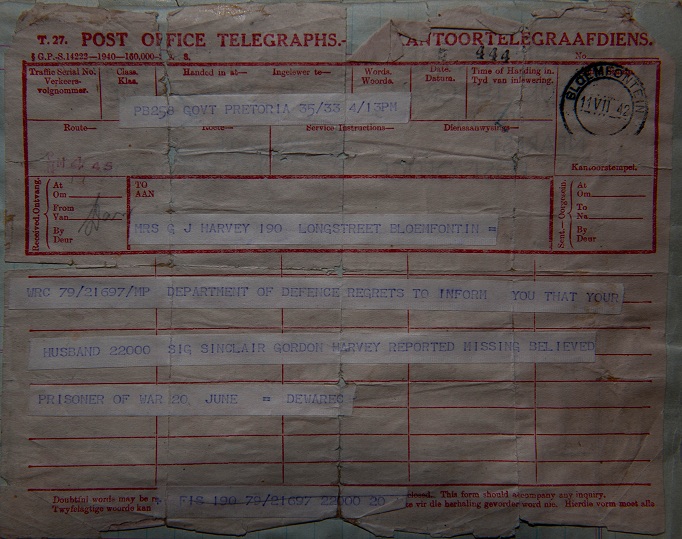 T. 27. POST OFFICE TELEGRAPHS.- ANTOORTELEGRAAFDIENS.
§ G.P.-S.14222—1940—160,000- S. 8. 444 No.
Traffic Serial No. Class. Handed in at— Ingelewer te— Words. Date. Time of Handing in.
Verkeers- Klas. Woorde. Datum. Tyd van inlewering.
volgnommer.
BLOEMFONTEIN
11 VII 42
PB258 GOVT PRETORIA 35/33 4/13PM
Route— Route— Service Instructions— Dienaanwysings—
Kantoorstempel.
Received.—Ontvang.
At
Om
From
Van
By
Deur
TO
AAN
MRS G J HARVEY 190 LONGSTREET BLOEMFONTIN =
Sent.—Oorgesein.
At
Om
To
Na
By
Deur
WRC 79/21697/MP DEPARTMENT OF DEFENCE REGRETS TO INFORM YOU THAT YOUR
HUSBAND 22000 SIG SINCLAIR GORDON HARVEY REPORTED MISSING BELIEVED
PRISONER OF WAR 20 JUNE = DEWAREC =
Doubtful words may be closed. This form should accompany any inquiry.
Twyfelagtige woorde kan vir die herhaling gevorder word nie. Hierdie vorm moet alle
FIS 190 79/21697 22000 20